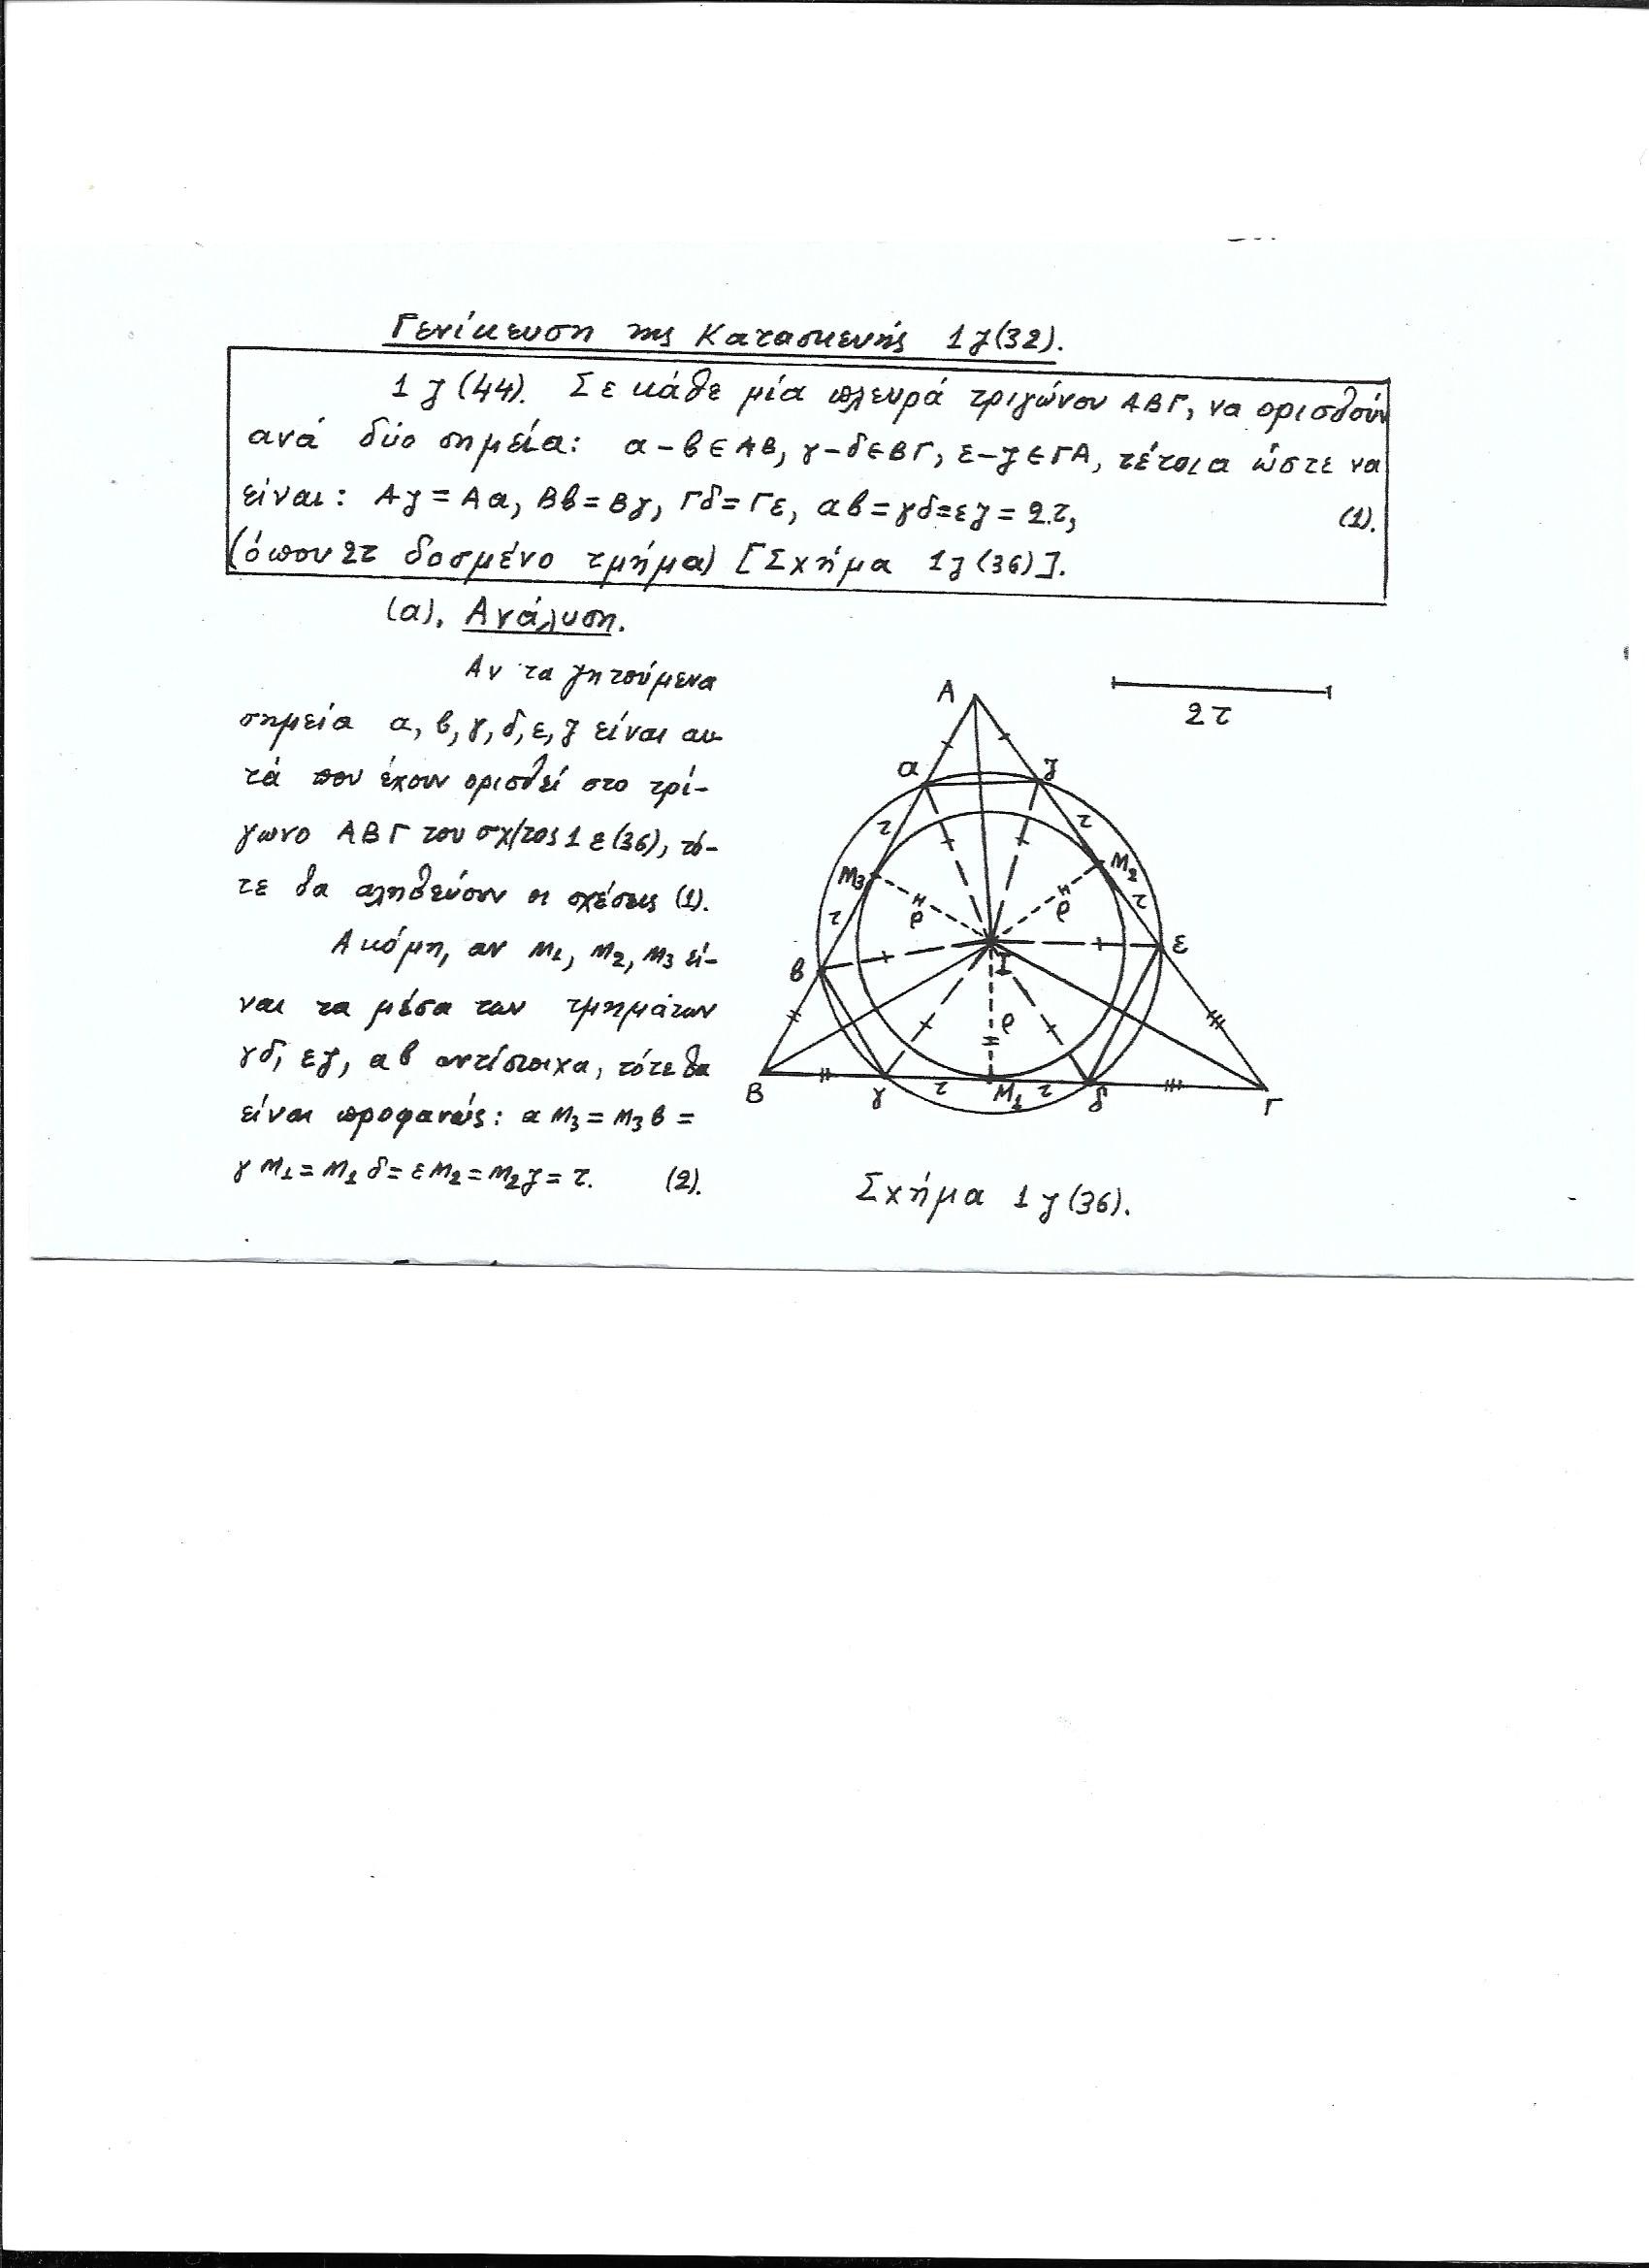 Γενίκευση της Κατασκευής 1ζ(32).
1ζ(44). Σε κάθε μία πλευρά τριγώνου ΑΒΓ, να ορισθούν
ανά δύο σημεία: α-β∈ΑΒ, γ-δ∈ΒΓ, ε-ζ∈ΓΑ, τέτοια ώστε να
είναι: Αζ=Αα, Ββ=Βγ, Γδ=Γε, αβ=γδ=εζ=2.τ, (1).
(όπου 2τ δοσμένο τμήμα) [Σχήμα 1ζ(36)].
(α). Ανάλυση.
Αν τα ζητούμενα
σημεία α, β, γ, δ, ε, ζ είναι αυ-
τά που έχουν ορισθεί στο τρί-
γωνο ΑΒΓ του σχ/τος 1ε(36), τό-
τε θα αληθεύουν οι σχέσεις (1).
Ακόμη, αν Μ1, Μ2, Μ3 εί-
ναι τα μέσα των τμημάτων
γδ, εζ, αβ αντίστοιχα, τότε θα
είναι προφανώς: αΜ3=Μ3β=
γΜ1=Μ1δ=εΜ2=Μ2ζ=τ. (2).
Α
2τ
α
ζ
τ
τ
Μ3
Μ2
ρ
ρ
τ
τ
β
Ι
ε
ρ
Β
γ
τ
Μ1
τ
δ
Γ
Σχήμα 1ζ(36).